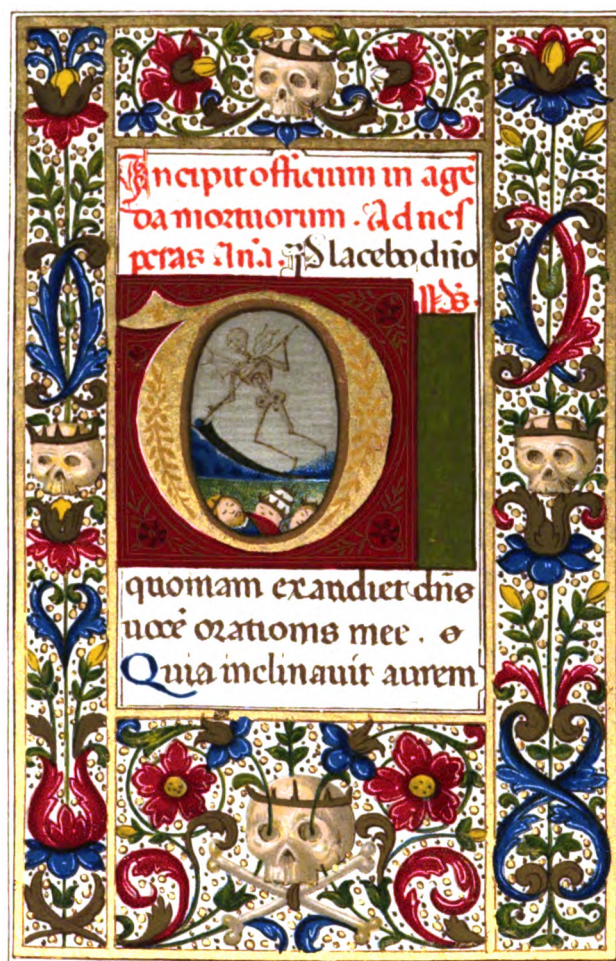 Incipit officium in agē
da mortuorum . Ad ves
peras Añа. Placebo dño
D
quoniam exaudiet dñs
uocē orationis mee .
Quia inclinauit aurem